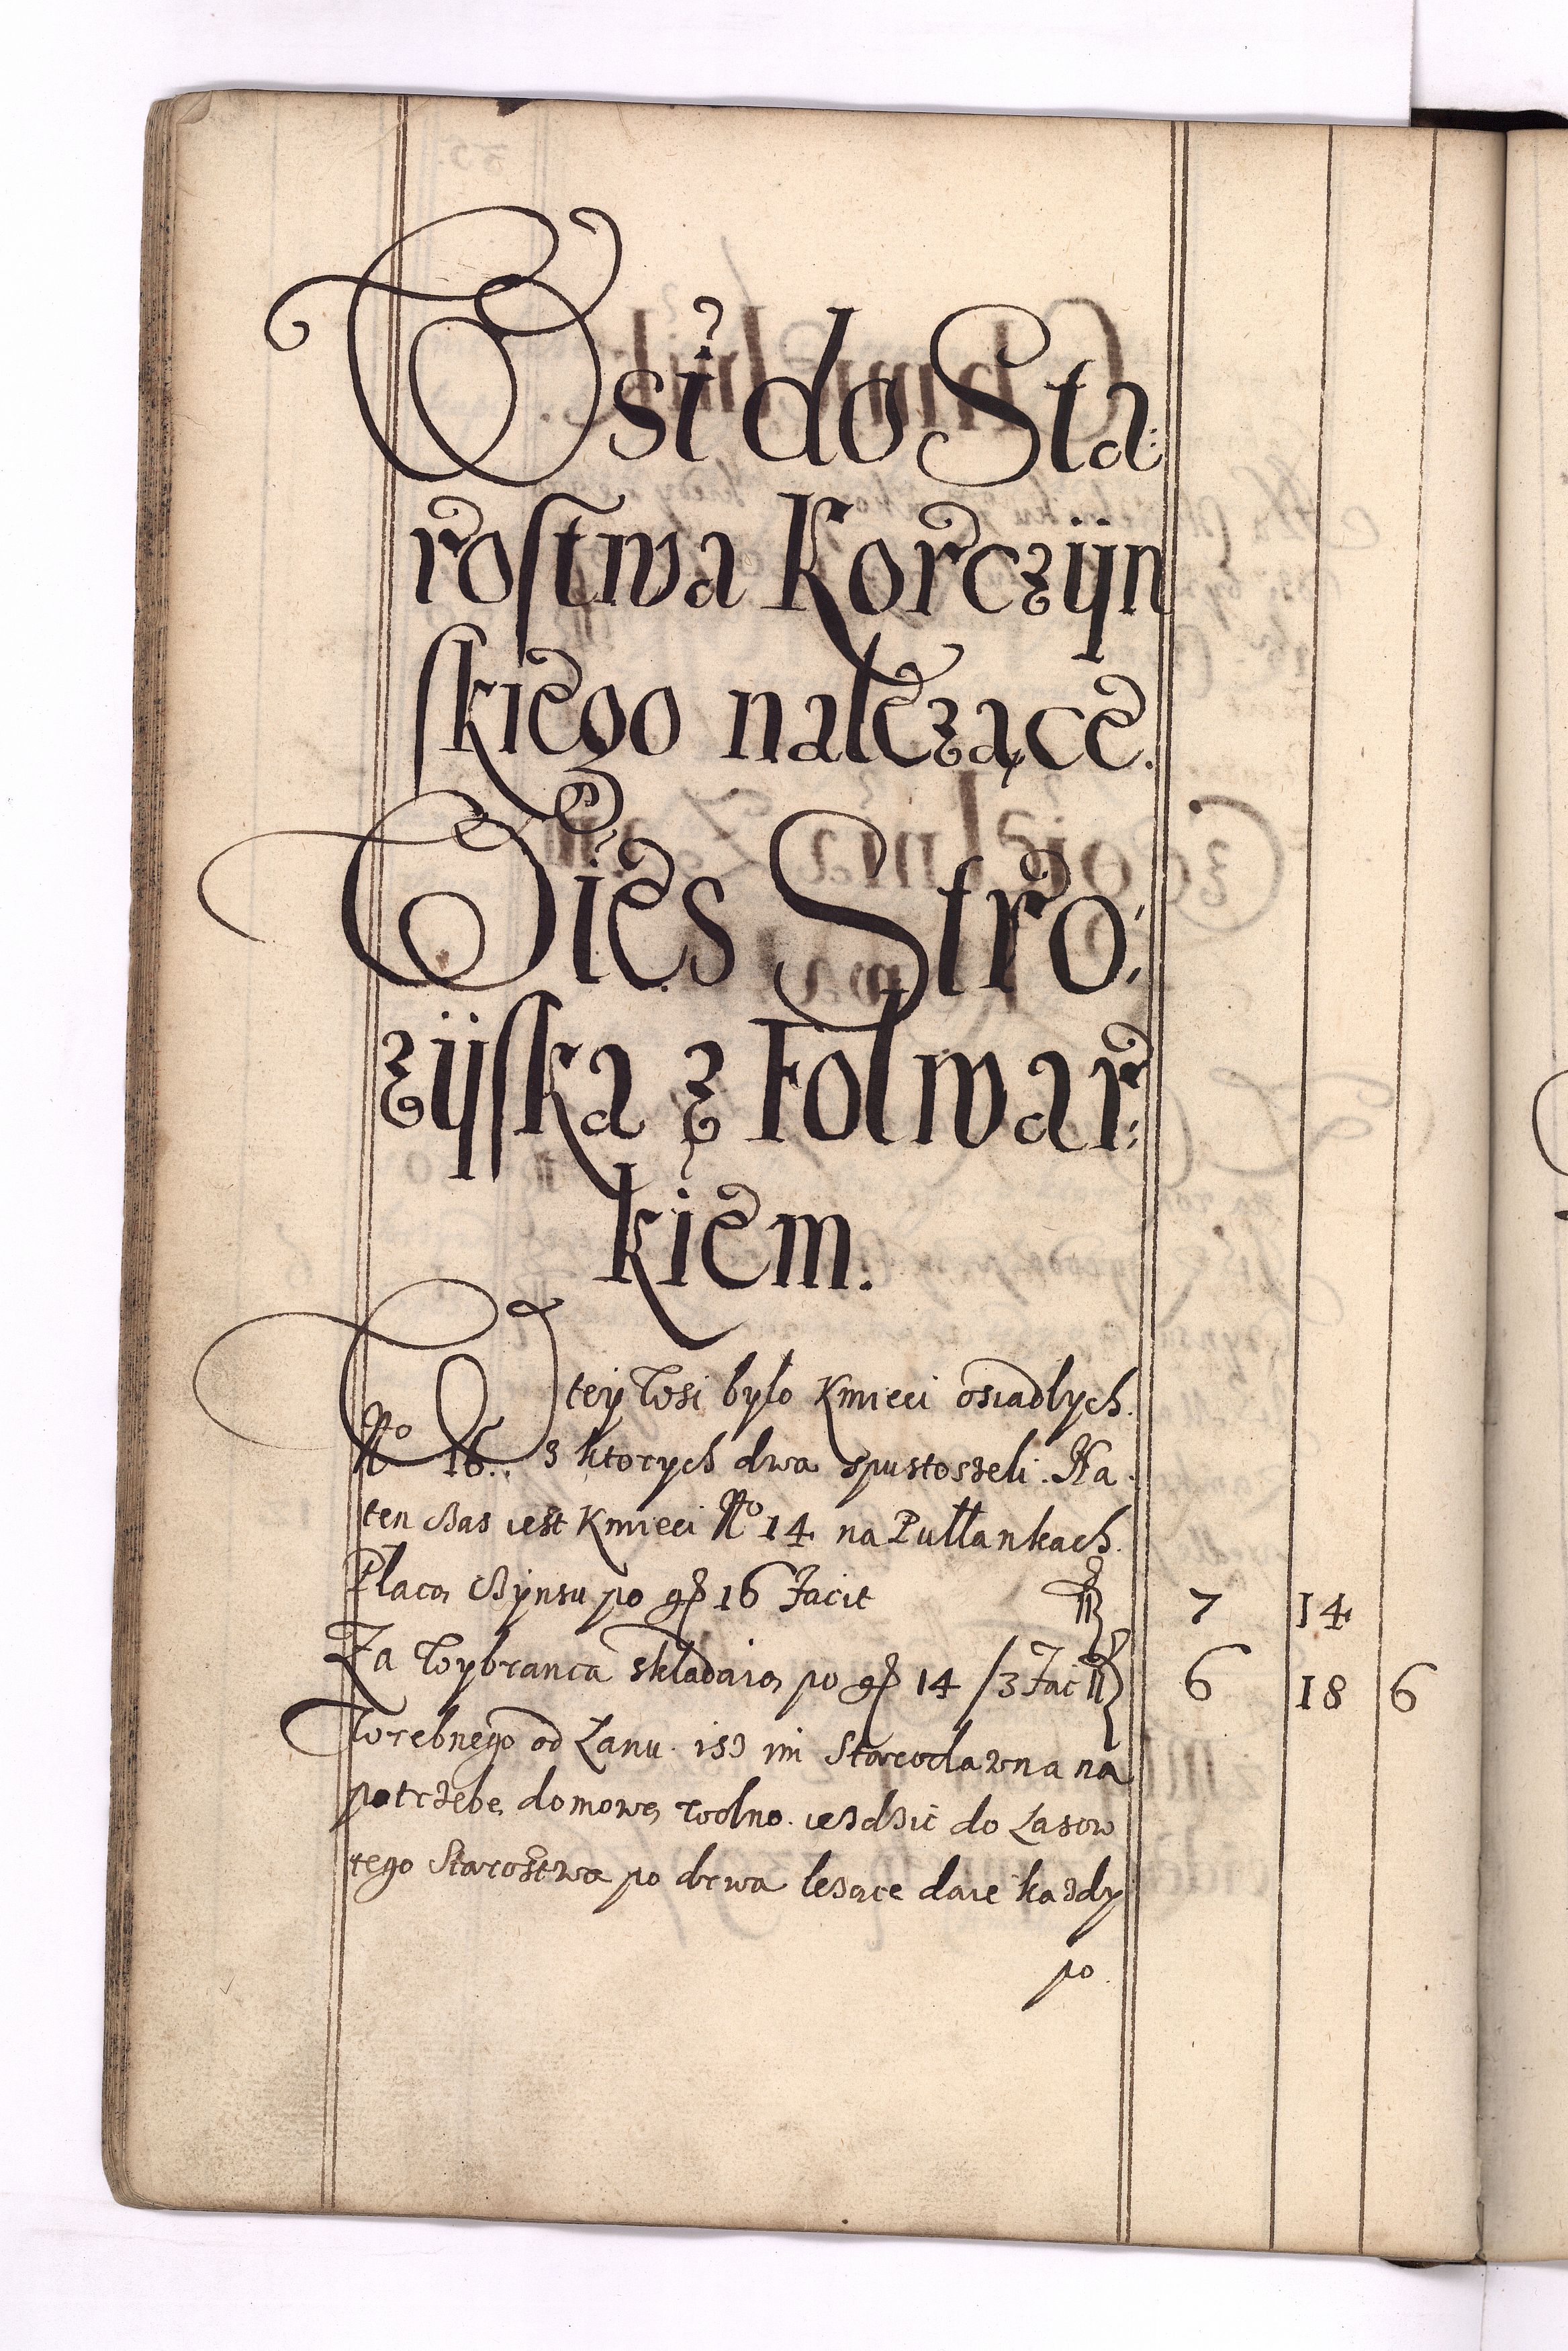 Wsi do Sta:
rostwa Korczijn
skiego nalezące.
Wies Stro:
zijska z Folwar:
kiem.
W tey Wsi bylo Kmieci osiadlych.
No 16. z ktorych dwa spustoszeli. Na
ten czas iest Kmieci No 14 na Pułłankach.
Placą Czynszu po gr 16 Facit fl 7 14
Za Wybranca składaią po gr 14 /3 Faci fl 6 18 6
Worebnego od Łanu. isz im Starodawna na
potrzebę domowę wolno. iezdzic do Lasow
tego Starostwa po drwa lezące daie kazdy
po.